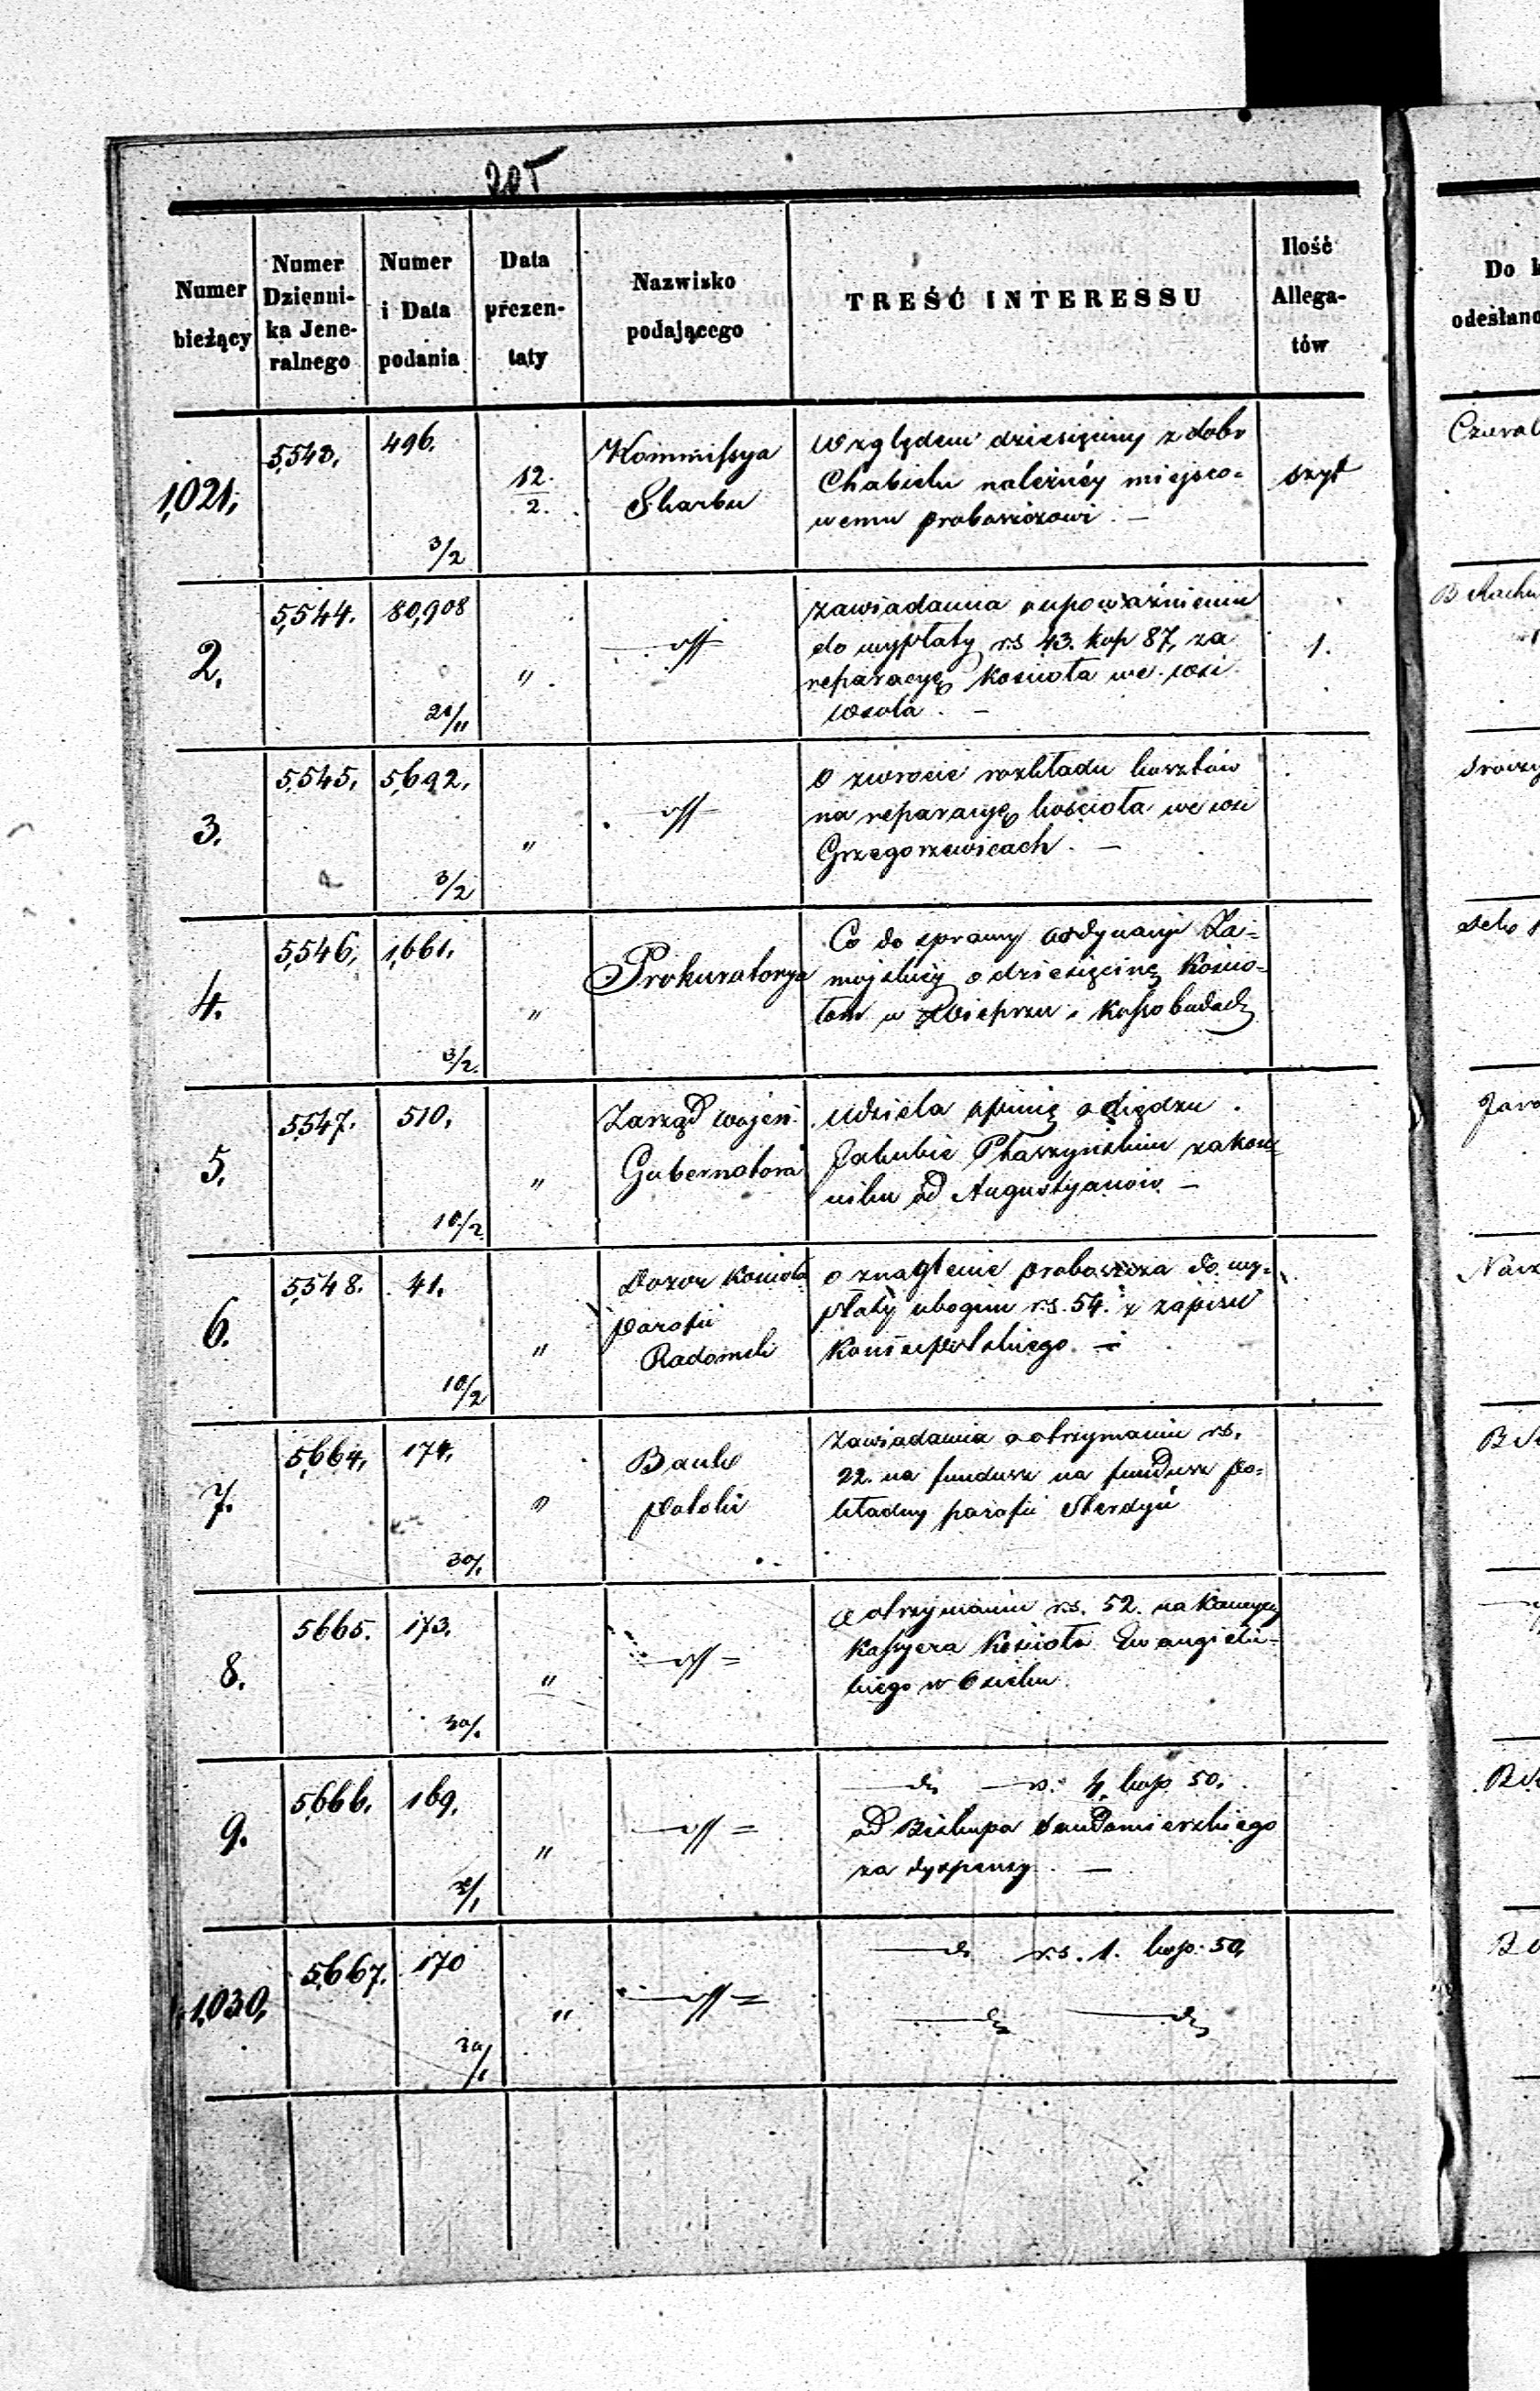 205
Numer bieżący
Numer Dzienni-ka Jene-ralnego
Numer i Data podania
Data prezen-taty
Nazwisko podającego
TREŚĆ INTERESSU
Ilość Allega-tów
Do k
odesłano
1,021.
5,543.
496.
3/2
12.
2.
Kommissya
Skarbu
Względem dziesięciny z dobr
Chabielu należnéy miejsco=
wemu proboszczowi. —
szyt
2.
5,544.
80,908
21/11
"
zawiadamia o upoważnieniu
do wypłaty rs 43. kop 87, za
reparacyę kościoła we wsi
Wsola. —
1.
3.
5,545.
5,692.
3/2
"
O zwrocie rozkładu kosztów
na reparacyę kościoła we wsi
Grzegorzewicach. —
4.
5,546.
1,661.
3/2.
"
Prokuratorya
Co do sprawy ordynacyi Za=
mojskiéy o dziesięcinę Kościo=
łom w Wieprzu i Kossobudach
5.
5,547.
510.
10/2
"
Zarząd wojen.
Gubernatora
udziela opinię o księdzu
Jakubie Ptaszyńskim zakon=
niku od Augustyanów —
6.
5,548.
41.
10/2
"
Dozor Kościoła
parafii
Radomsk
o znaglenie proboszcza do wy=
płaty ubogim rs. 54. z zapisu
Koniecpolskiego. —
7.
5,664.
174.
30/1
"
Bank
Polski
Zawiadamia o otrzymaniu rs.
22. na fundusz na fundusz po=
kładny parafii Sterdyń
8.
5665.
173.
30/1
"
o otrzymaniu rs. 52. na Kaucyę
Kassyera Kościoła Ewangielic=
kiego w Osieku.
9.
5,666.
169.
"
4. kop 50.
od Biskupa Sandomierskiego
za dyspensy. —
1,030.
5,667.
170
30/1
"
rs. 1. kop. 50,